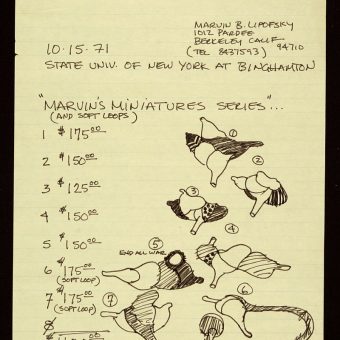 MARVIN B. LIPOFSKY
1012 PARDEE
BERKELEY CALIF
94710
(TEL 8437593)
10.15.71
STATE UNIV. OF NEW YORK AT BINGHAMTON
"MARVIN'S MINIATURES SERIES"...
(AND SOFT LOOPS)
1 $175.00
2 $150.00
3 $125.00
4 $150.00
5 $150.00
6 $175.00
(SOFT LOOP)
7 $175.00
(SOFT LOOP)
8
1
2
3
4
5
END ALL WAR
6
7